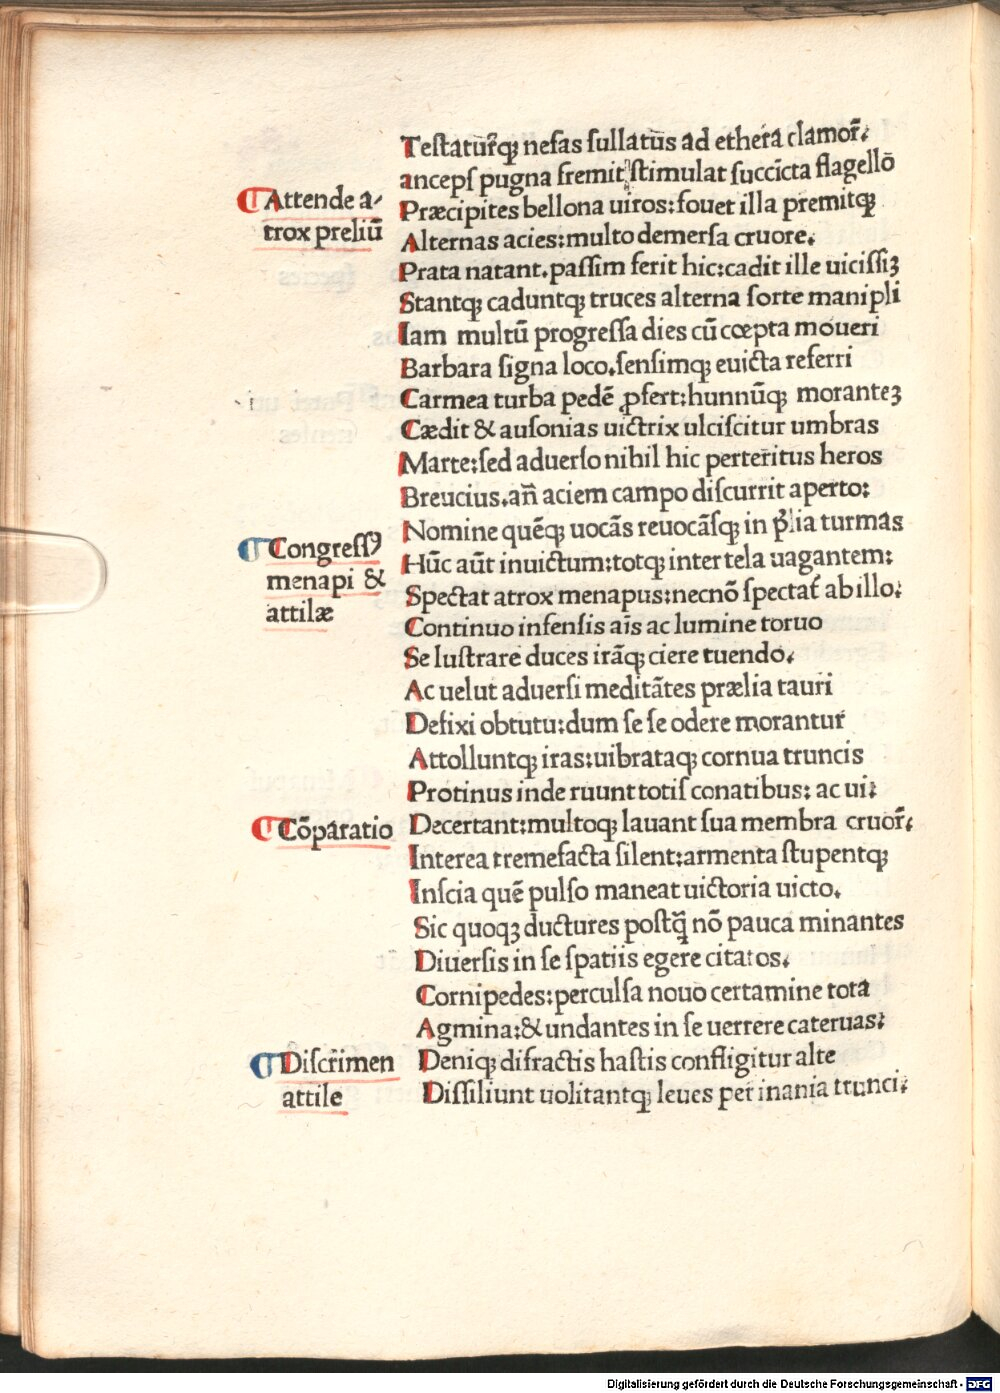 Teſtatur̃q; nefas ſullatus ad ethera clamor̃.
anceps pugna fremit: ſtimulat ſuccicta flagello
Præcipites bellona uiros: fouet illa premitq;
Alternas acies: multo demerſa cruore.
Prata natant. paſſim ferit hic: cadit ille uiciſſiꝫ
Stantq; caduntq; truces alterna ſorte manipli
Iam multū progreſſa dies cū cœpta moueri
Barbara ſigna loco. ſenſimq; euicta referri
Carmea turba pedē ꝓfert: hunnūq; moranteꝫ
Cædit & auſonias uictrix ulciſcitur umbras
Marte: ſed aduerſo nihil hic perterritus heros
Breucius. an̄ aciem campo diſcurrit aperto:
Nomine quēq; uocās reuocāſq; in p̄lia turmas
Hūc aūt inuictum: totq; inter tela uagantem:
Spectat atrox menapus: necnō ſpectat̃ ab illo:
Continuo infenſis aīs ac lumine toruo
Se luſtrare duces irāq; ciere tuendo.
Ac uelut aduerſi meditātes prælia tauri
Defixi obtutu: dum ſe ſe odere morantur
Attolluntq; iras: uibrataq; cornua truncis
Protinus inde ruunt totiſ conatibus: ac ui:
Decertant: multoq; lauant ſua membra cruor̃.
Interea tremefacta ſilent: armenta ſtupentq;
Inſcia quē pulſo maneat uictoria uicto.
Sic quoqꝫ ductures poſtq̄ nō pauca minantes
Diuerſis in ſe ſpatiis egere citatos.
Cornipedes: perculſa nouo certamine tota
Agmina: & undantes in ſe uerrere cateruas:
Deniq; difractis haſtis confligitur alte
Diſſiliunt uolitantq; leues per inania trunci:
¶ Attende a-
trox preliū
¶ Congreſſꝰ
menapi &
attilæ
¶ Cōparatio
¶ Diſcrimen
attile
Digitalisierung gefördert durch die Deutsche Forschungsgemeinschaft - DFG